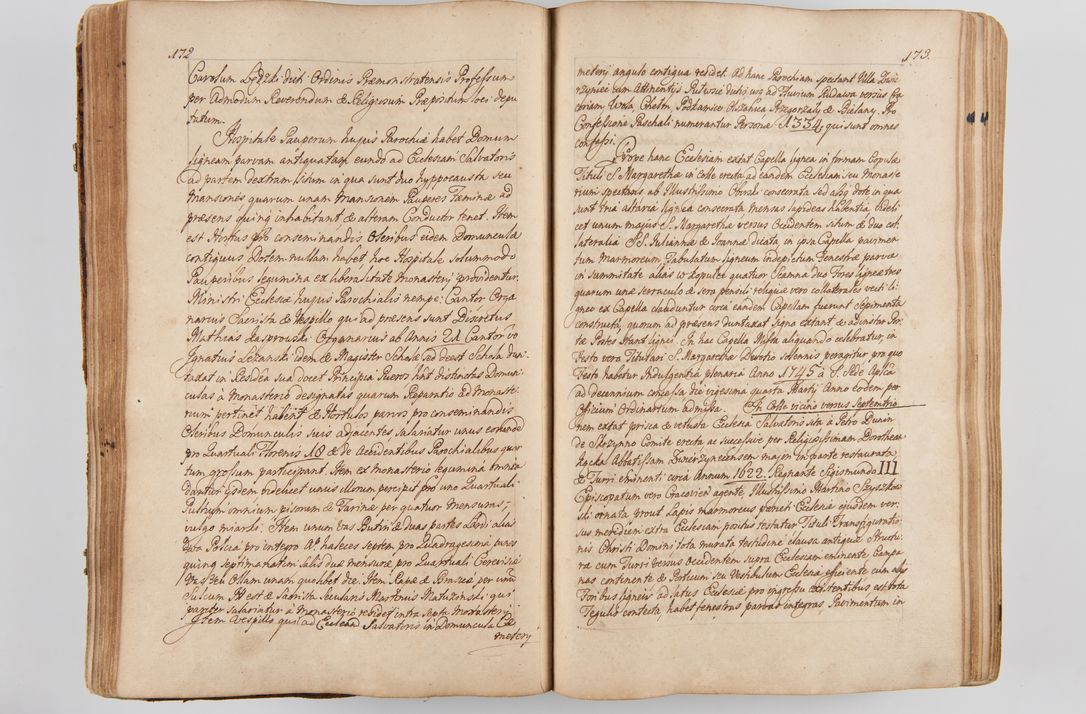 172
Carolum Lędzki dicti Ordinis Præmonstratensis Professum
per Admodum Reverendum & Religiosum Præpositum loci depu
tatum.
Hospitale Pauperum hujus Parochiæ habet Domum
ligneam parvam antiquatam eundo ad Ecclesiam Salvatoris
ad partem dextram sitam in qua sunt duo hyppocausta seu
Mansiones quarum unam mansionem Pauperes Fæminæ ad
præsens quinq inhabitant & alteram Conductor tenet. Item
est Hortus pro conseminandis Oleribus eidem Domunculæ
contiguus Dotem nullam habet hoc Hospitale solummodo
Pauperibus legumina ex liberalitate Monasterij providentur.
Ministri Ecclesiæ hujus Parochialis nempe: Cantor Orga
narius Sacrista & Vespillo qui ad præsens sunt Discretus
Mathias Jasprowski Organarius ab Annis 21 Cantor vo
Ignatius Lezanski idem & Magister Scholæ sed deest Schola dun
taxat in Residea sua docet Principia Pueror hnt distinctas Domun
culas a Monasterio designatas quarum Reparatio ad Monaste
rium pertinet habent & Hortulos parvos pro conseminandis
Oleribus Domunculis suis adjacentes salariatur unus
pro Quartuali Florenis 10 & de Accidentibus Parochialibus quar
tum grossum participant. Item ex Monasterio legumina
dantur ijsdem videlicet unus illorum percipit pro uno Quartuali
Pultrum omnium pisorum & Farinæ per quatuor mensuras,
vulgo miarki: Item unum vas Butiri & suas partes Lardi alias
dwa Połcia pro integro Ao haleces septem pro Quadragesima panes
quinq septimanatim salis duæ mensuræ pro Quartuali Cerevisiæ
Ollam unam quolibet die. Item Rapæ & Brasicæ per unu
Sulcum It est & Sacrista Sæcularis Martinus Matuzinski qui
pariter salariatur a Monasterio residet intra septa Monasterij
Item Vespillo qui ad Ecclesia Salvatoris in Domuncula Cæ
metery
173.
meterij angulo contigua residet. Ad hanc Parochiam spectant Villa Zwie
rzyniec cum Attinentijs Półwsie dictis usq ad Fluvium Rudawa versus
Wola Chełm Przegorzały & Bielany. Pro
Confessione Paschali numerantur Personæ 1334 qui sunt omnes
confessi.
Prope hanc Ecclesiam extat Capella lignea in formam Cupulæ
Tituli S. Margarethæ in colle erecta ad eandem Ecclesiam seu Monaste
rium spectans ab Illustrissimo consecrata sed absq dote in qua
sunt tria altaria lignea consecrata mensas lapideas habentia videli
cet unum majus S. Margarethæ versus Occidentem situm & duo col
lateralia S.S. Juliannæ & Joannæ dicata, in ipsa Capella pavimen
tum Marmoreum, Tabulatum ligneum indepictum Fenestræ parvæ
in summitate alias w kopule quatuor Scamna duo Fores ligneæ tres
quarum una serraculo & sera pensili reliquæ vero collaterales vecti li
gneo ex Capella clauduntur circa eandem Capellam fuerunt sepimenta
constructa, quorum ad præsens duntaxat signa extant & ad instar Por
tæ Postes stant lignei. In hac Capella Missa aliquando celebratur, in
Festo vero Titulari S. Margarethæ Devotio solennis peragitur pro quo
Festo habetur Indulgentia plenaria Anno 1745 a S. Sede Aplica
ad decennium concessa die vigesima quarta Martij Anno eodem per
Officium Ordinarium admissa. In Colle vicino versus Septentrio
nem extat prisca & vetusta Ecclesia Salvatoris sita a Petro Dunin
de Skrzynno Comite erecta ac successive per Religiosissimam Dorotheam
Kącka Abbatissam Zwierzynecensem majori in parte restaurata
& Turri eminenti circa Annum 1622. Regnante Sigismundo III
Episcopatum vero Cracovien agente Illustrissimo Martino Szyszkow
ski ornata prout Lapis marmoreus parieti Ecclesiæ ejusdem ver
sus meridiem extra Ecclesiam positus testatur Tituli Transfiguratio
nis Christi Domini tota murata testudine clausa antiquæ Structu
ra cum Turri versus Occidentem supra Ecclesiam eminente Campa
nas continente & Porticum seu Vestibulum Ecclesiæ efficiente cum alijs
Foribus ligneis ad latus Ecclesiæ pro ingressu existentibus est tota
Tegulis contecta, habet fenestras parvas integras Pavimentum in